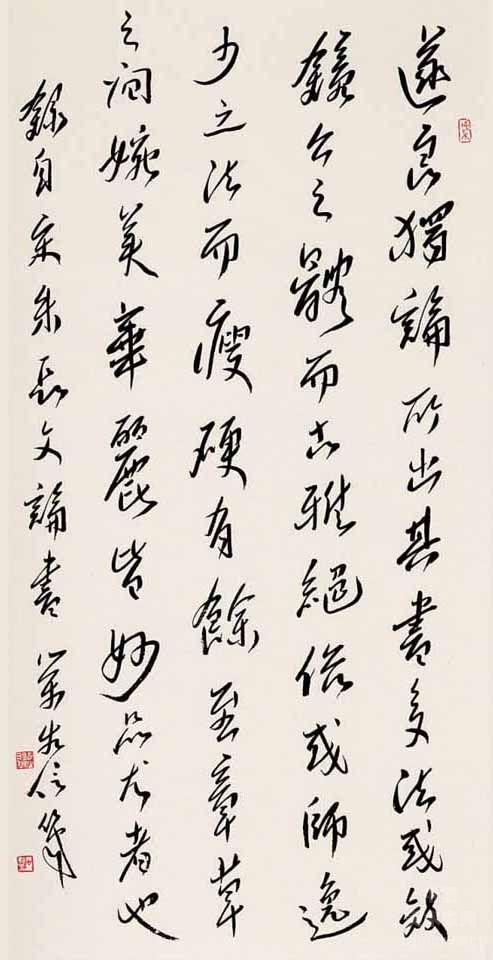 遂良獨論所出其書多法或效
鐘公之體而古雅絕俗或師逸
少之法而瘦硬有餘至章草
之間婉美華麗皆妙品尤者也
錄自宋朱長文論書 信筆